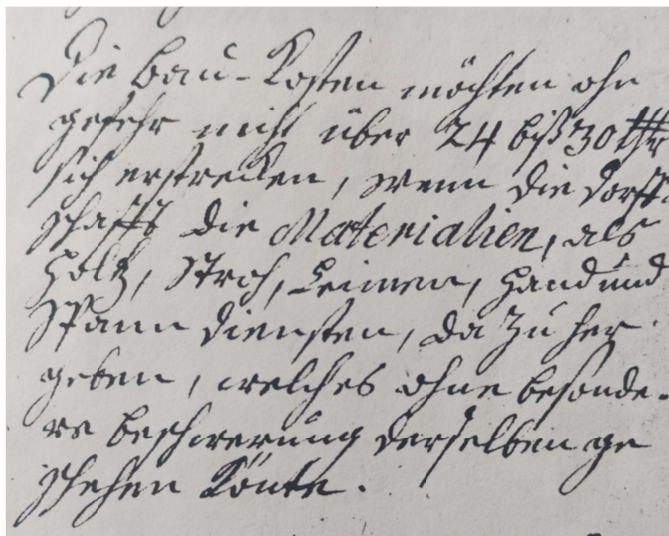 Die bau-Kosten möchten ohn
gefehr nicht über 24 biß 30 thr
sich erstrecken, wenn die dorff-
schafft die Materialien, als
holtz, Stroh, Leimen, hand und
Spann diensten, da zu her
geben, welches ohne besonde-
re beschwerung derselben ge
schehen könte.